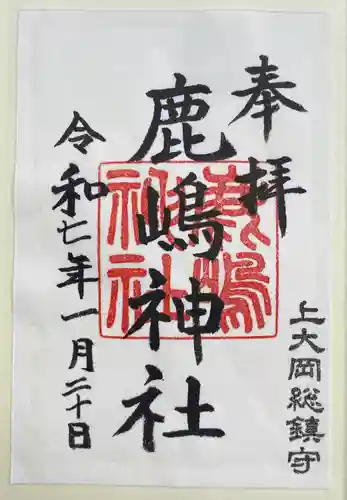 奉拝
上大岡総鎮守
鹿嶋神社
鹿嶋神社
令和七年一月二十日